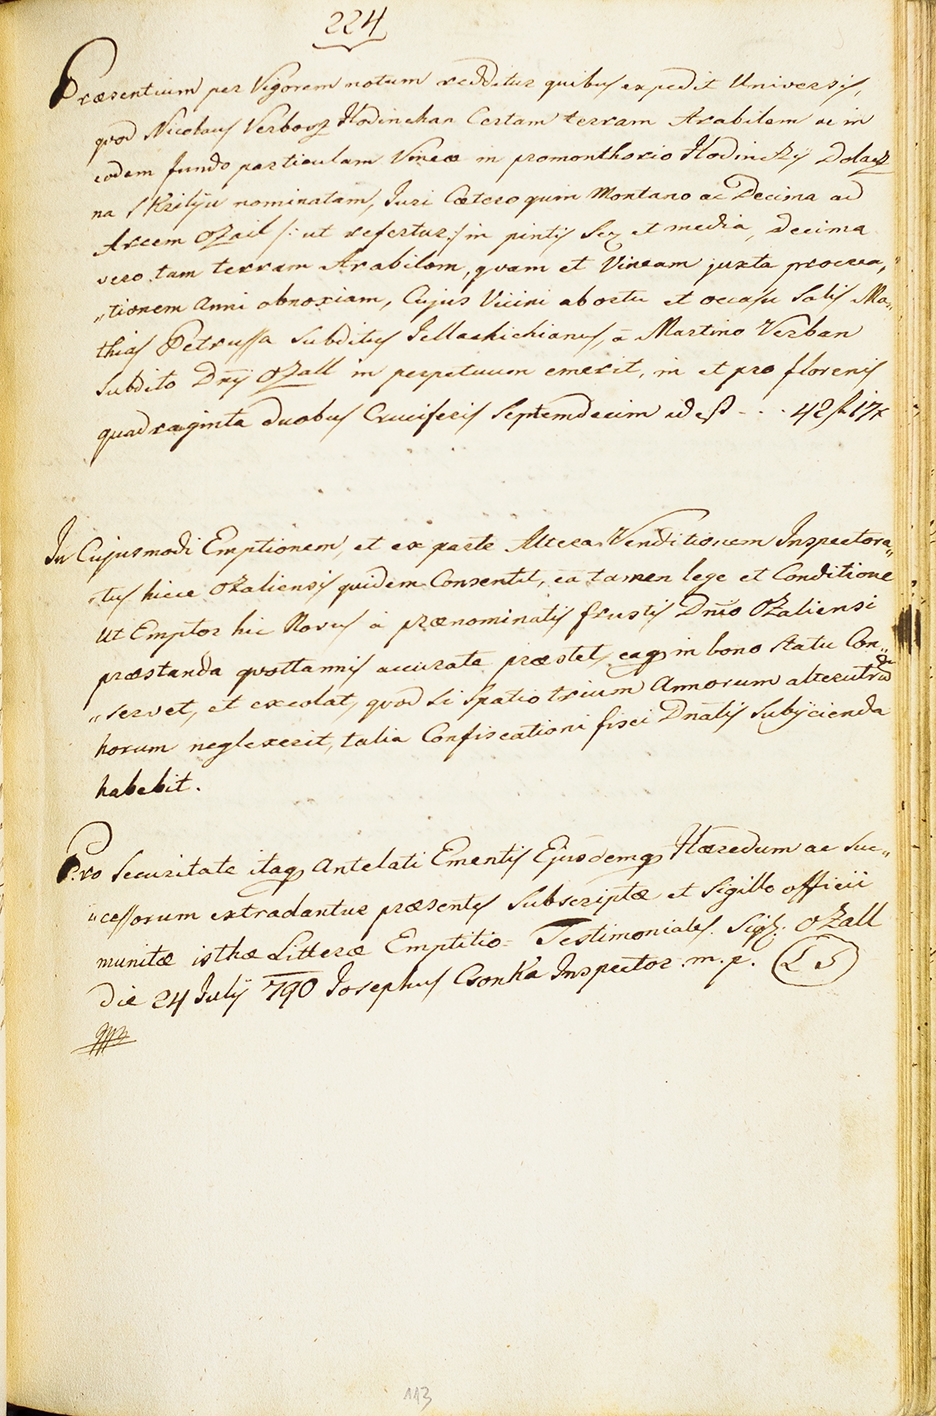 224
Præsentium per Vigorem notum redditur quibus expedit Universis,
quod Nicolaus Verbovz Hodinchan Certam terram Arabilem ac in
eodem fundo particulam Vineæ in promonthorio Hodinczÿ Dolacz
na Krilju nominatam, Juri Cæteroquim Montano ac Decima ad
Arcem Ozail /: ut refertur :/ in pintis Sex et media, decima
vero tam terram Arabilem, quam et Vineam juxta procrea„
„tionem Anni obnoxiam, Cujus Vicini ab ortu et occasu Solis Ma„
thias Petrussa Subditus Jellachichianus, à Martino Verban
Subdito Dnÿ Ozall in perpetuum emerit, in et pro florenis
quadraginta duobus Cruciferis Septemdecim id est - - - 42 f 17 x
In Cujusmodi Emptionem, et ex parte Altera Venditionem Inspectora„
„tus hicce Ozaliensis quidem Consentit, ea tamen lege et Conditione
Ut Emptor hic Novus à prænominatis frustis Dnio Ozaliensi
præstanda quottannis accurate præstet, eaq in bono Statu Con„
„servet, et excolat, quod Si Spatio trium Annorum alterutrum
horum neglexerit, talia Confiscationi fisci Dnalis Subÿcienda
habebit.
Pro Securitate itaq Antelati Ementis Ejusdemq Hæredum ac Suc„
„cessorum extradantur præsentes Subscriptæ et Sigillo officii
munitæ isthæ Litteræ Emptitio= Testimoniales. Sig. Ozall
Die 24 Julÿ 790 Josephus Csonka Inspector. m. p. L S
113